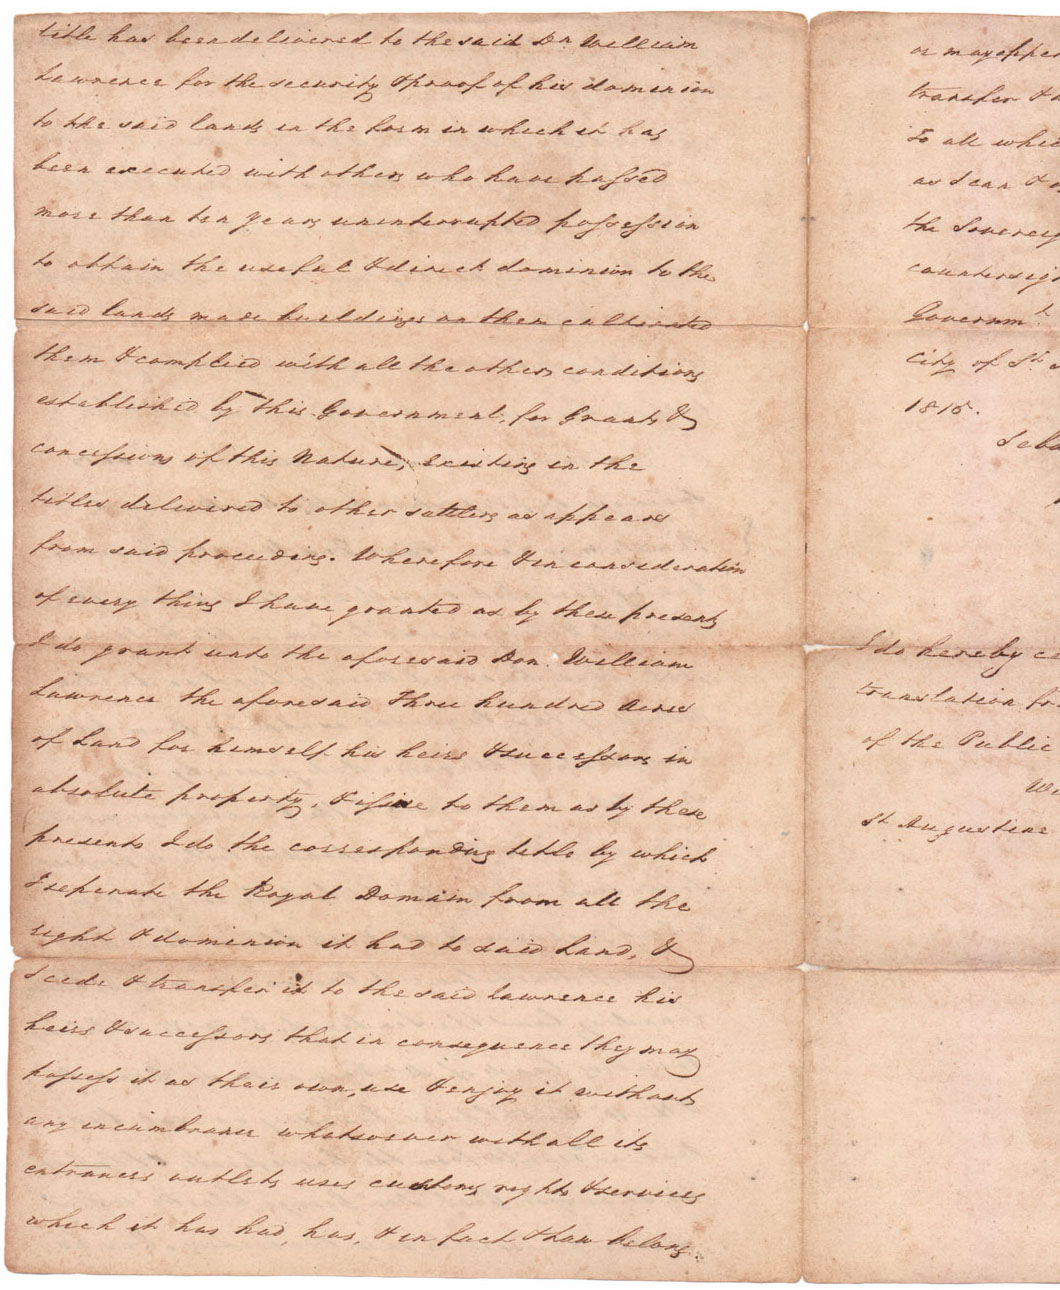 title has been delivered to the said Dn William
Lawrence for the security & proof of his dominion
to the said lands in the form in which it has
been executed with others who have passed
more than ten years uninterrupted possession
to obtain the useful & direct dominion to the
said lands made buildings on them cultivated
them & complied with all the others conditions
established by this Government, for Grants &
concessions of this Nature, existing in the
titles delivered to other settlers as appears
from said proceedings. Wherefore & in consideration
of every thing I have granted as by these presents
I do grant unto the aforesaid Don William
Lawrence the aforesaid Three hundred Acres
of Land for himself his heirs & successors in
absolute property, & issue to them as by these
presents I do the corresponding title by which
I seperate the Royal Domain from all the
right & dominion it had to said Land, &
I cede & transfer it to the said Lawrence his
heirs & successors that in consequence they may
possess it as their own, use & enjoy it without
any incumbrance whatsoever with all its
entrances outlets uses customs rights & services
which it has had, has, & in fact & law belong
or may apper
transfer &
To all whic
as I can &
the Sovereig
countersig
Governmt
City of St
1815.
Seba
I do hereby ce
translation fr
of the Public
St Augustine